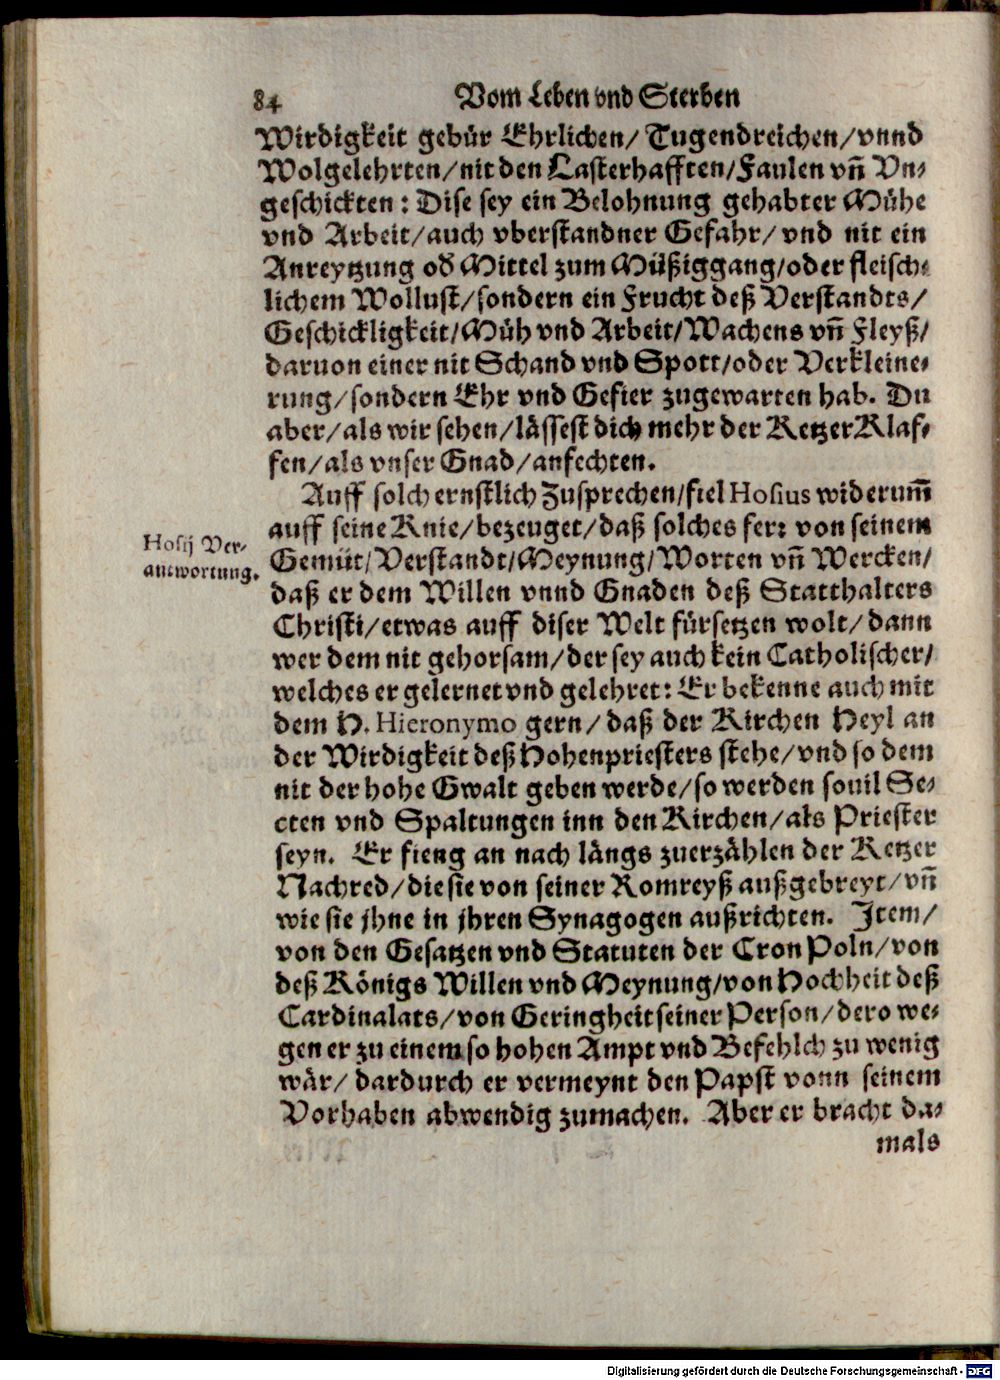 84 Vom Leben vnd Sterben
Wirdigkeit gebür Ehrlichen/ Tugendreichen/ vnnd
Wolgelehrten/ nit den Lasterhafften/ Faulen vñ Vn-
geschickten: Dise sey ein Belohnung gehabter Mühe
vnd Arbeit/ auch vberstandner Gefahr/ vnd nit ein
Anreytzung oď Mittel zum Müßiggang/ oder fleisch-
lichem Wollust/ sondern ein Frucht deß Verstandts/
Geschickligkeit/ Müh vnd Arbeit/ Wachens vñ Fleyß/
daruon einer nit Schand vnd Spott/ oder Verkleine-
rung/ sondern Ehr vnd Gefier zugewarten hab. Du
aber/ als wir sehen/ lässest dich mehr der Ketzer Klaf-
fen/ als vnser Gnad/ anfechten.
Auff solch ernstlich Zusprechen/ fiel Hosius widerum̃
auff seine Knie/ bezeuget/ daß solches ferr von seinem
Hosij Ver-
antwortung.
Gemüt/ Verstandt/ Meynung/ Worten vñ Wercken/
daß er dem Willen vnnd Gnaden deß Statthalters
Christi/ etwas auff diser Welt fürsetzen wolt/ dann
wer dem nit gehorsam/ der sey auch kein Catholischer/
welches er gelernet vnd gelehret: Er bekenne auch mit
dem H. Hieronymo gern/ daß der Kirchen Heyl an
der Wirdigkeit deß Hohenpriesters stehe/ vnd so dem
nit der hohe Gwalt geben werde/ so werden souil Se-
cten vnd Spaltungen inn den Kirchen/ als Priester
seyn. Er fieng an nach längs zuerzählen der Ketzer
Nachred/ die sie von seiner Romreyß außgebreyt/ vñ
wie sie jhne in jhren Synagogen außrichten. Item/
von den Gesatzen vnd Statuten der Cron Poln/ von
deß Königs Willen vnd Meynung/ von Hochheit deß
Cardinalats/ von Geringheit seiner Person/ dero we-
gen er zu einem so hohen Ampt vnd Befehlch zu wenig
wär/ dardurch er vermeynt den Papst vonn seinem
Vorhaben abwendig zumachen. Aber er bracht da-
mals
Digitalisierung gefördert durch die Deutsche Forschungsgemeinschaft - DFG